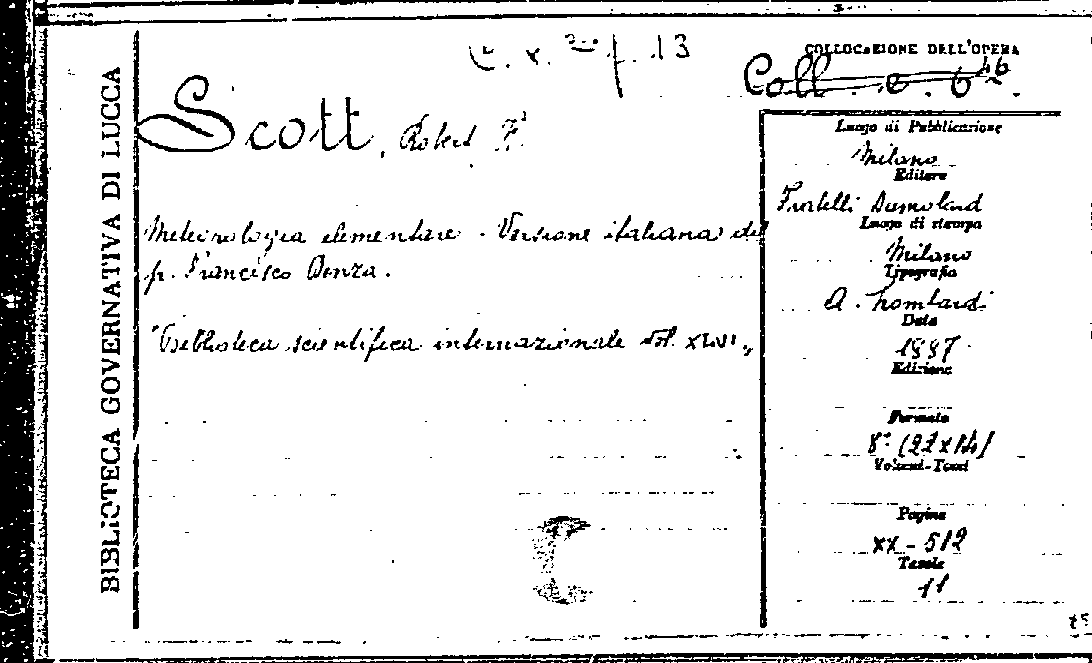 BIBLIOTECA GOVERNATIVA DI LUCCA
C. x. f. 13
COLLOCAZIONE DELL'OPERA
Coll. e. 6 46
Scott, Robert H.
Meteorologia elementare. Versione italiana del
p. Francesco Denza.
"Biblioteca scientifica internazionale vol.
Luogo di Pubblicazione
Milano
Editore
Fratelli Dumolard
Luogo di stampa
Milano
Tipografia
A. Lombardi
Data
1887
Edizione
Formato
8° (22x14)
Volumi-Tomi
Pagine
XX - 512
Tavole
11